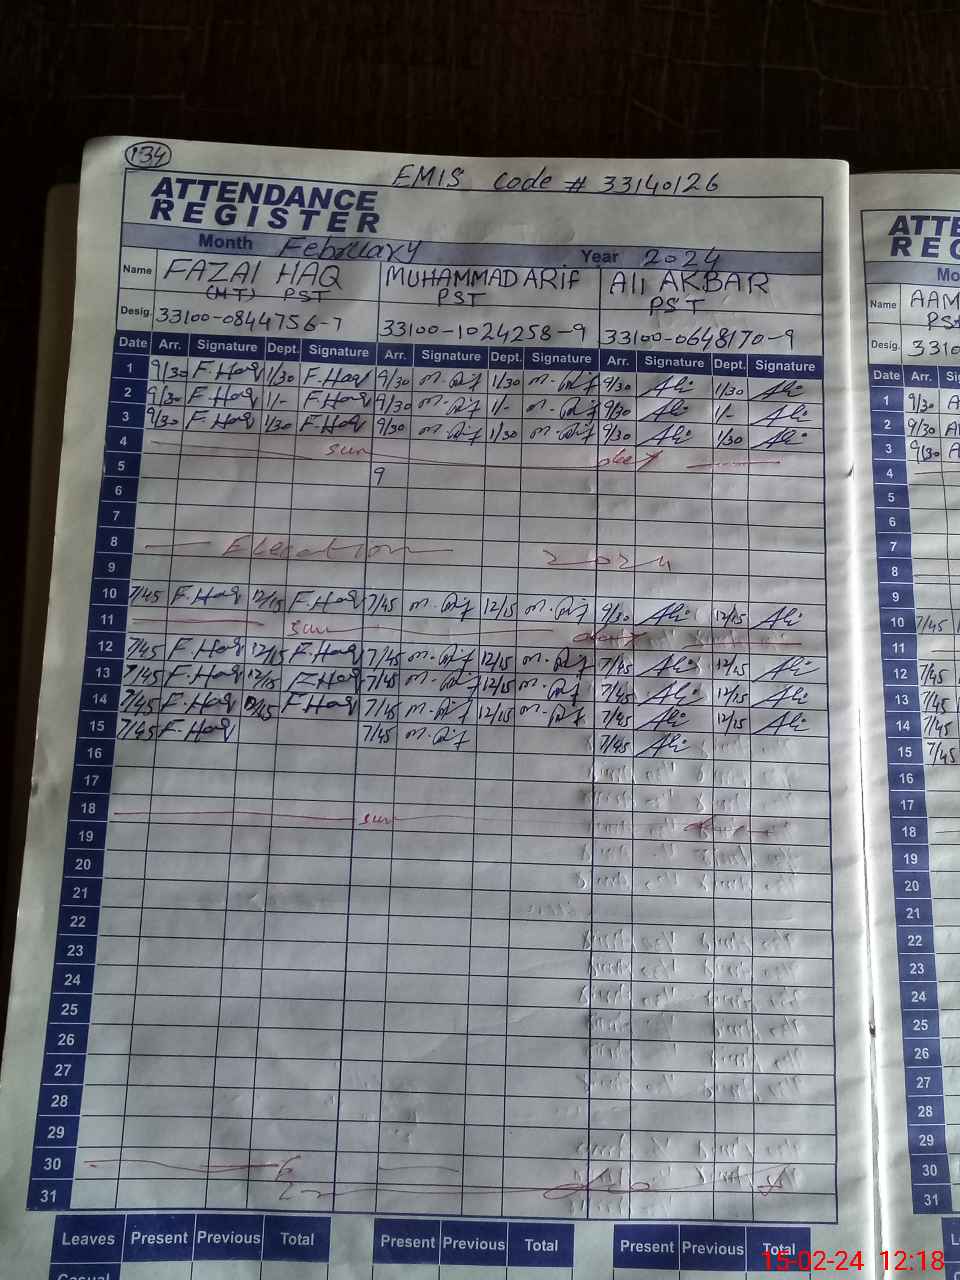 134
EMIS Code # 33140126
ATTENDANCE
REGISTER
Month February Year 2024
Name FAZAl HAQ MUHAMMAD ARif Ali AKBAR
(HT) PST PST PST
Desig. 33100-0844756-7 33100-1024258-9 33100-0648170-9
Date Arr. Signature Dept. Signature Arr. Signature Dept. Signature Arr. Signature Dept. Signature
1 9/30 F.Haq 1/30 F.Haq 9/30 M.Arif 1/30 M.Arif 9/30 Ali 1/30 Ali
2 9/30 F.Haq 1/- F.Haq 9/30 M.Arif 1/- M.Arif 9/30 Ali 1/- Ali
3 9/30 F.Haq 1/30 F.Haq 9/30 M.Arif 1/30 M.Arif 9/30 Ali 1/30 Ali
4 sun day
5 9
6
7
8 Election 2024
9
10 7/45 F.Haq 12/15 F.Haq 7/45 M.Arif 12/15 M.Arif 9/30 Ali 12/15 Ali
11 sun day
12 7/45 F.Haq 12/15 F.Haq 7/45 M.Arif 12/15 M.Arif 7/45 Ali 12/15 Ali
13 7/45 F.Haq 12/15 F.Haq 7/45 M.Arif 12/15 M.Arif 7/45 Ali 12/15 Ali
14 7/45 F.Haq 12/15 F.Haq 7/45 M.Arif 12/15 M.Arif 7/45 Ali 12/15 Ali
15 7/45 F.Haq 7/45 M.Arif 7/45 Ali
16
17
18 sun
19
20
21
22
23
24
25
26
27
28
29
30
31
Leaves Present Previous Total Present Previous Total Present Previous Total
Casual
ATTE
REG
Mo
Name AAM
PST
Desig. 3310
Date Arr.
1 9/30
2 9/30
3 9/30
4
5
6
7
8
9
10 7/45
11
12 7/45
13 7/45
14 7/45
15 7/45
16
17
18
19
20
21
22
23
24
25
26
27
28
29
30
31
15-02-24 12:18